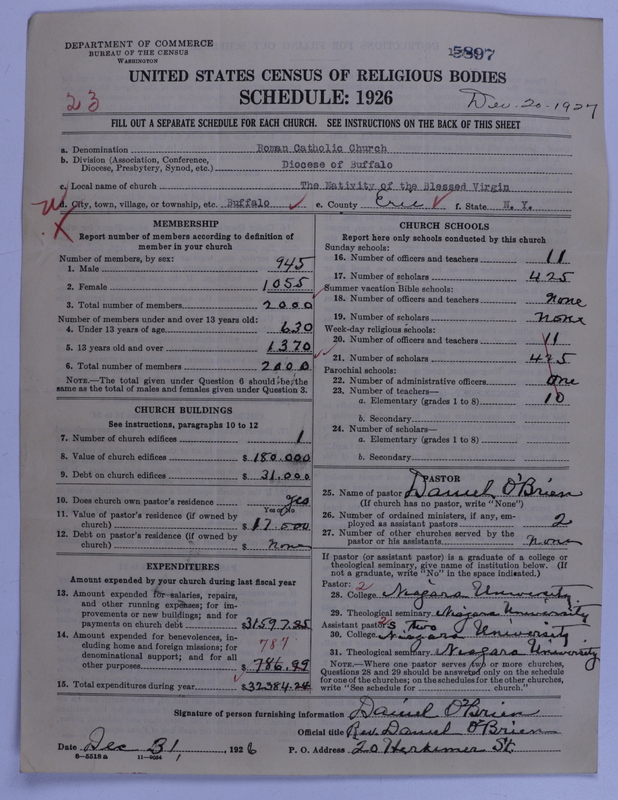 DEPARTMENT OF COMMERCE
BUREAU OF THE CENSUS
WASHINGTON
5897
UNITED STATES CENSUS OF RELIGIOUS BODIES
SCHEDULE: 1926
23
Dec. 20. 1927
FILL OUT A SEPARATE SCHEDULE FOR EACH CHURCH. SEE INSTRUCTIONS ON THE BACK OF THIS SHEET
a. Denomination Roman Catholic Church
b. Division (Association, Conference, Diocese, Presbytery, Synod, etc.) Diocese of Buffalo
c. Local name of church The Nativity of the Blessed Virgin
d. City, town, village, or township, etc. Buffalo e. County Erie f. State N. Y.
MEMBERSHIP
Report number of members according to definition of
member in your church
Number of members, by sex:
1. Male 945
2. Female 1055
3. Total number of members 2000
Number of members under and over 13 years old:
4. Under 13 years of age 630
5. 13 years old and over 1370
6. Total number of members 2000
NOTE.—The total given under Question 6 should be the
same as the total of males and females given under Question 3.
CHURCH BUILDINGS
See instructions, paragraphs 10 to 12
7. Number of church edifices 1
8. Value of church edifices $ 180.000
9. Debt on church edifices $ 31.000
10. Does church own pastor's residence yes
Yes or No
11. Value of pastor's residence (if owned by
church) $ 17.000
12. Debt on pastor's residence (if owned by
church) $ none
EXPENDITURES
Amount expended by your church during last fiscal year
13. Amount expended for salaries, repairs,
and other running expenses; for im-
provements or new buildings; and for
payments on church debt $31597.25
14. Amount expended for benevolences, in-
cluding home and foreign missions; for
denominational support; and for all
other purposes $ 786.99
787
15. Total expenditures during year $32384.24
CHURCH SCHOOLS
Report here only schools conducted by this church
Sunday schools:
16. Number of officers and teachers 11
17. Number of scholars 425
Summer vacation Bible schools:
18. Number of officers and teachers none
19. Number of scholars none
Week-day religious schools:
20. Number of officers and teachers 11
21. Number of scholars 425
Parochial schools:
22. Number of administrative officers one
23. Number of teachers—
a. Elementary (grades 1 to 8) 10
b. Secondary
24. Number of scholars—
a. Elementary (grades 1 to 8)
b. Secondary
PASTOR
25. Name of pastor Daniel O'Brien
(If church has no pastor, write "None")
26. Number of ordained ministers, if any, em-
ployed as assistant pastors 2
27. Number of other churches served by the
pastor or his assistants none
If pastor (or assistant pastor) is a graduate of a college or
theological seminary, give name of institution below. (If
not a graduate, write "No" in the space indicated.)
Pastor: 2
28. College Niagara University
29. Theological seminary Niagara University
Assistant pastor: 2 s two
30. College Niagara University
31. Theological seminary Niagara University
NOTE.—Where one pastor serves two or more churches,
Questions 28 and 29 should be answered only on the schedule
for one of the churches; on the schedules for the other churches,
write "See schedule for church."
Signature of person furnishing information Daniel O'Brien
Official title Rev. Daniel O'Brien
Date Dec 31, 1926 P. O. Address 20 Herkimer St.
6—5518 a 11—9034